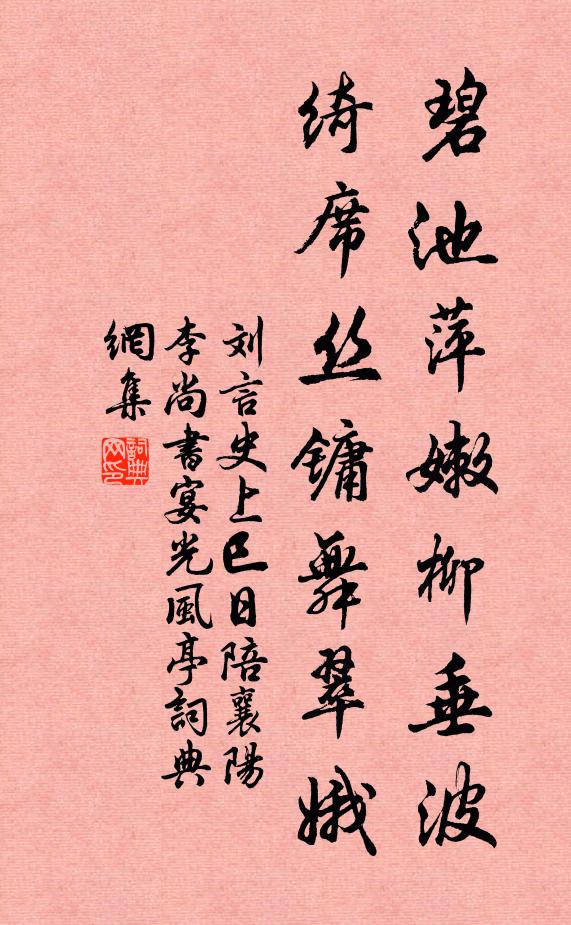 碧池萍嫩柳垂波
綺席丝镛舞翠娥
刘言史上巳日陪襄陽
李尚書宴光風亭詞典
網集
詞典網印